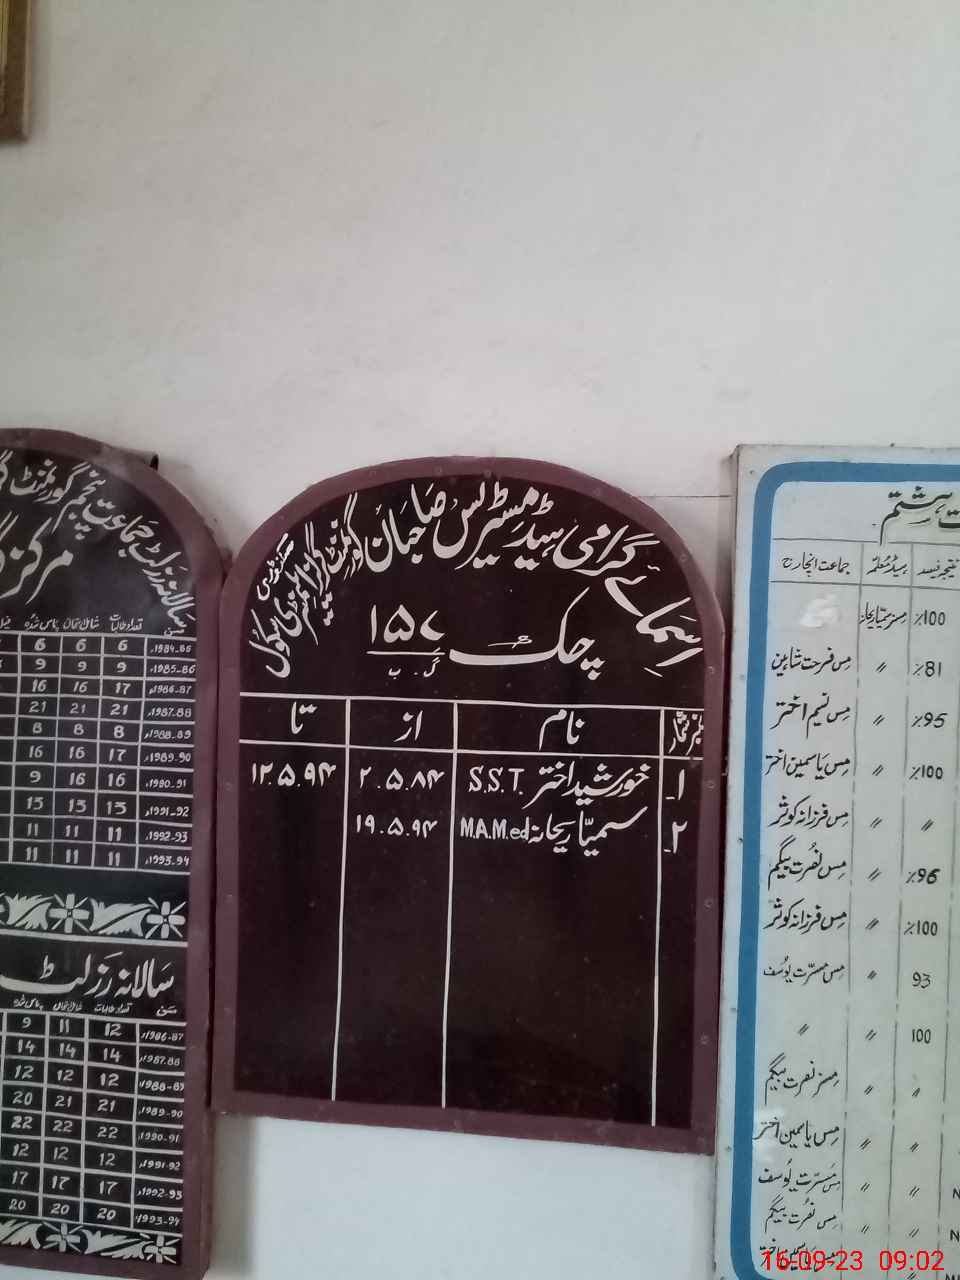 اسمائے گرامی ہیڈمسٹریس صاحبان گورنمنٹ گرلز ایلمنٹری سکول
چک ۱۵۷
گ ب
نمبر شمار نام از تا
۱۔ خورشید اختر S.S.T. ۲.۵.۸۴ ۱۲.۵.۹۴
۲۔ سمیّا ریحانہ M.A.M.ed ۱۹.۵.۹۴
سالانہ رزلٹ جماعت پنجم گورنمنٹ
مرکز
سن تعداد طالبات شامل امتحان پاس شدہ
1984-86ء 6 6 6
1985-86ء 9 9 9
1986-87ء 17 16 16
1987-88ء 21 21 21
1988-89ء 8 8 8
1989-90ء 17 16 16
1990-91ء 16 16 9
1991-92ء 13 13 13
1992-93ء 11 11 11
1993-94ء 11 11 11
سالانہ رزلٹ
سن تعداد طالبات شامل امتحان پاس شدہ
1986-87ء 12 11 9
1987-88ء 14 14 14
1988-89ء 12 12 12
1989-90ء 21 21 20
1990-91ء 22 22 22
1991-92ء 12 12 12
1992-93ء 17 17 17
1993-94ء 20 20 20
ہشتم
جماعت انچارج ہیڈ معلمہ نتیجہ فیصد
مسز سمیّا ریحانہ ٪100
مس فرحت شاہین 〃 ٪81
مس نسیم اختر 〃 ٪95
مس یاسمین اختر 〃 ٪100
مس فرزانہ کوثر 〃 〃
مس نصرت بیگم 〃 ٪96
مس فرزانہ کوثر 〃 ٪100
مس مسرّت یوسف 〃 93
〃 〃 100
مسز نصرت بیگم 〃 〃
مس یاسمین اختر 〃 〃
مس مسرّت یوسف 〃 〃
مس نصرت بیگم 〃 〃
مس یاسمین اختر
16-09-23 09:02